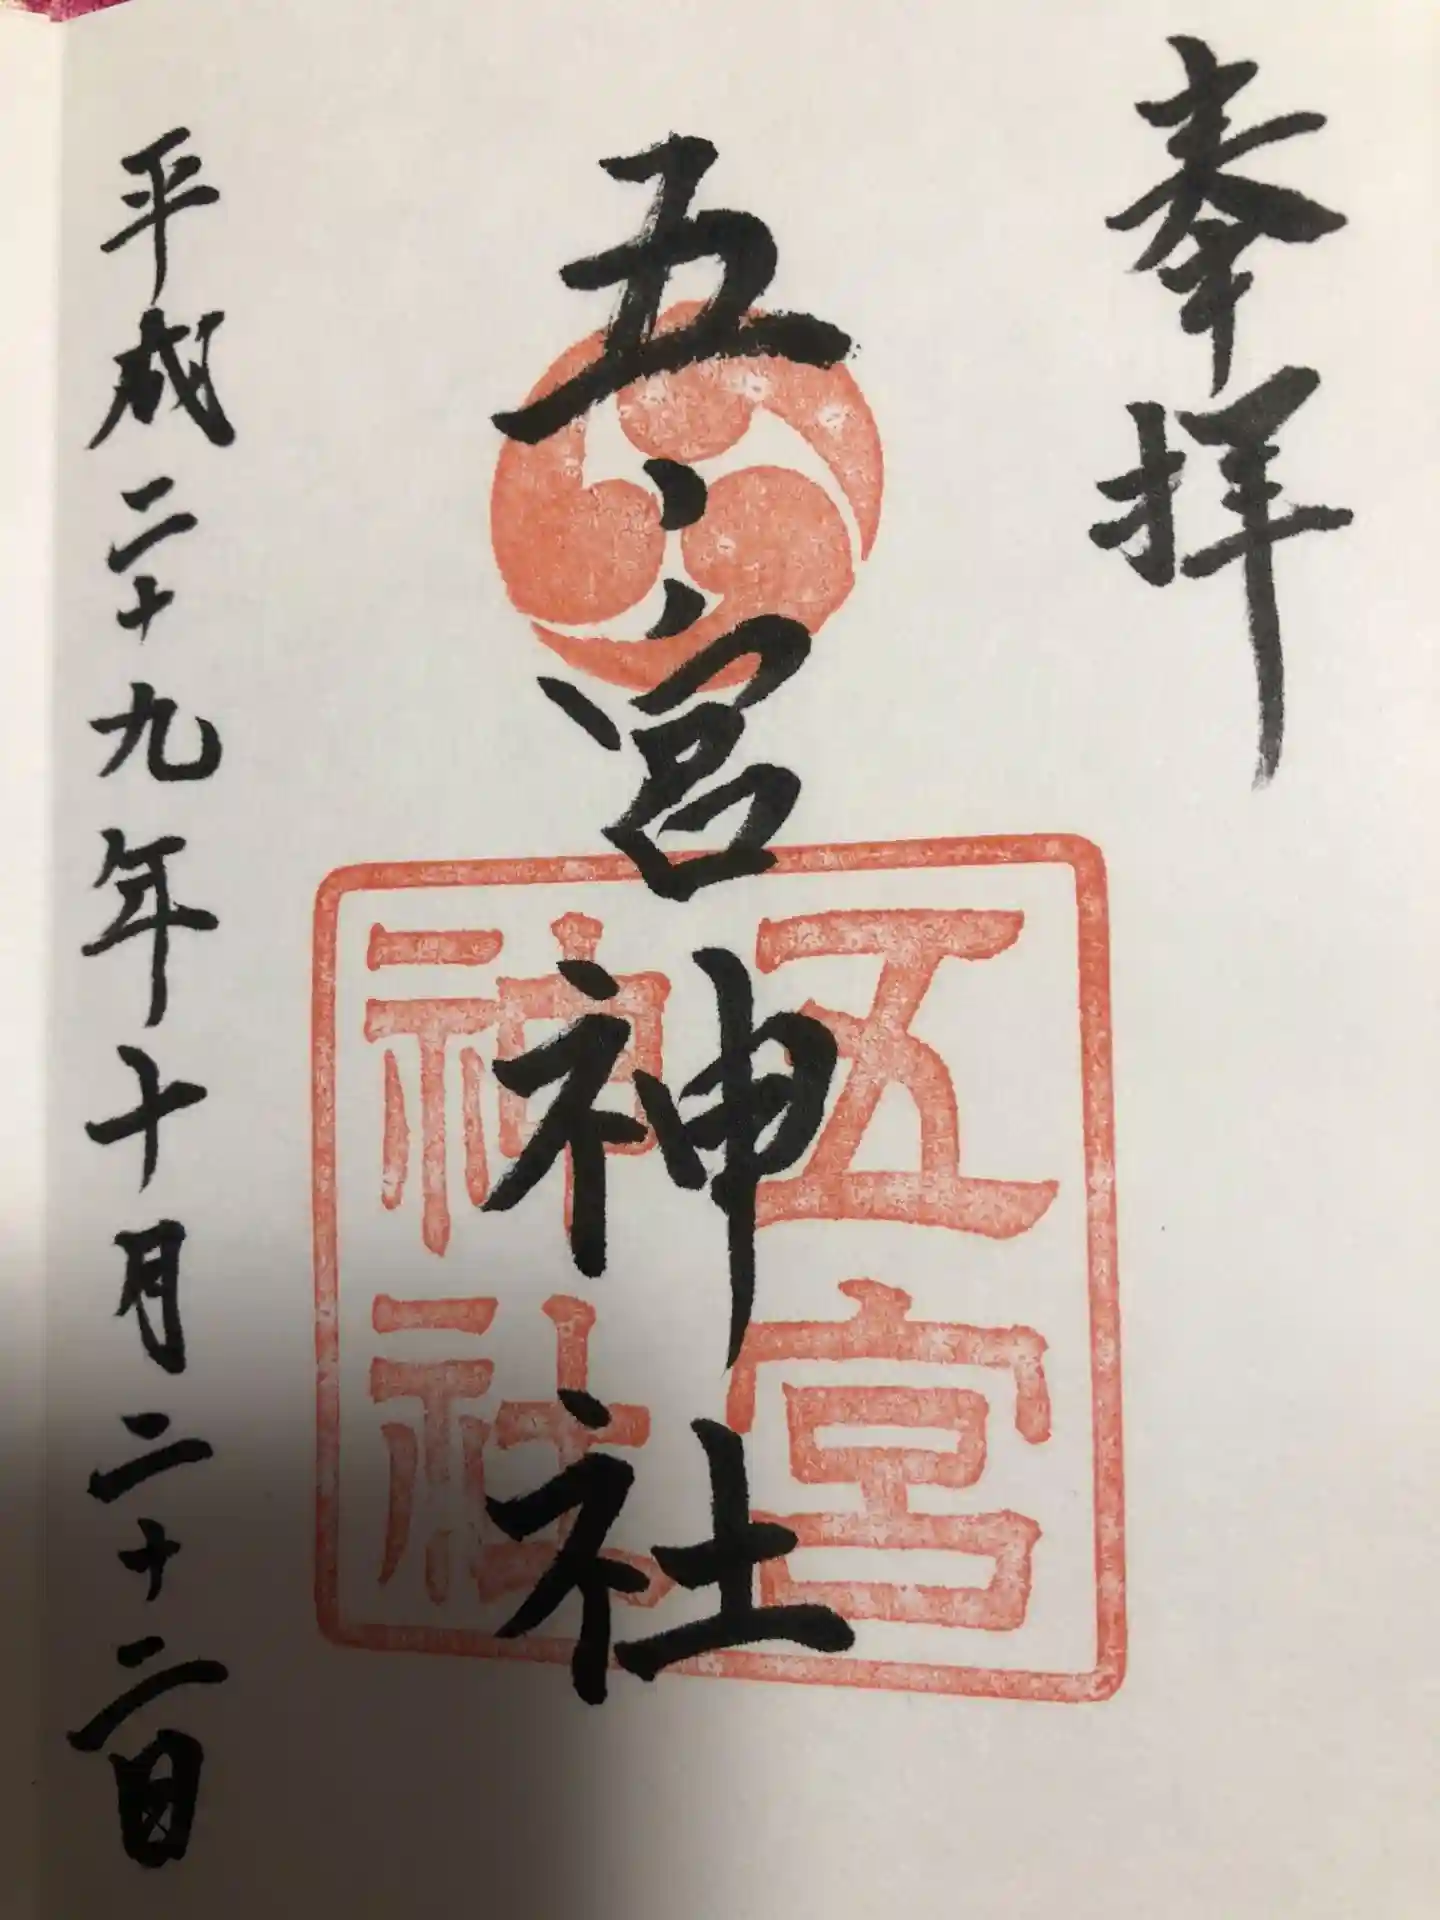 奉拝
五宮神社
五宮
神社
平成二十九年十月二十二日